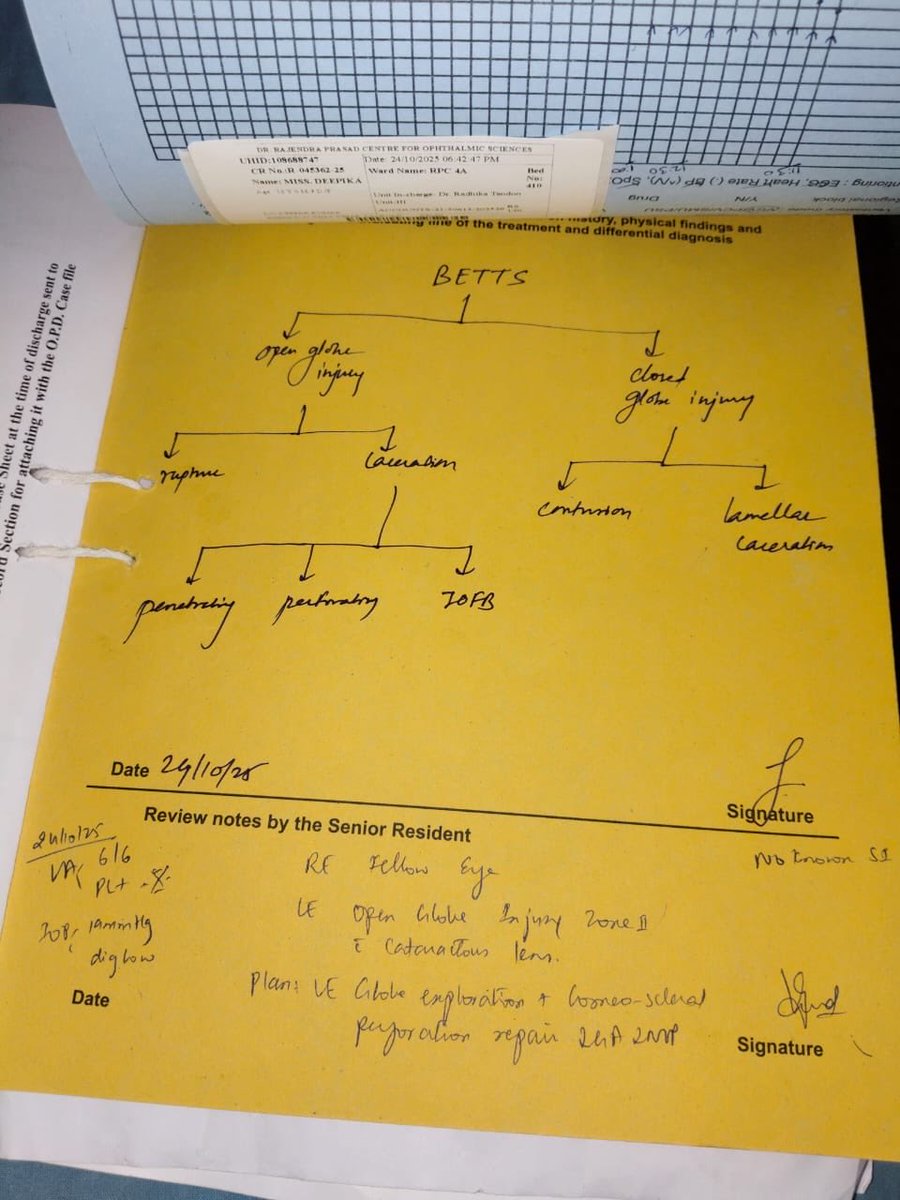 DR. RAJENDRA PRASAD CENTRE FOR OPHTHALMIC SCIENCES
UHID:108688747
Date: 24/10/2025 06:42:47 PM
CR No.:R-045362-25
Ward Name: RPC 4A
Bed No: 410
Name: MISS. DEEPIKA
Unit In-charge: Dr. Radhika Tandon
Unit-III
history, physical findings and
line of the treatment and differential diagnosis
BETTS
open globe injury
closed globe injury
rupture
laceration
contusion
lamellar laceration
penetrating
perforating
IOFB
Date 24/10/25
Signature
Review notes by the Senior Resident
24/10/25
VA 6/6
PL+
RE Fellow Eye
No known SI
LE Open Globe Injury Zone II
c̄ Cataractous lens.
IOP
dig low
Plan: LE Globe exploration + Corneo-scleral
perforation repair
Date
Signature
Sheet at the time of discharge sent to
Section for attaching it with the O.P.D. Case file
Heart Rate (.) BP
SpO
Drug
Y/N